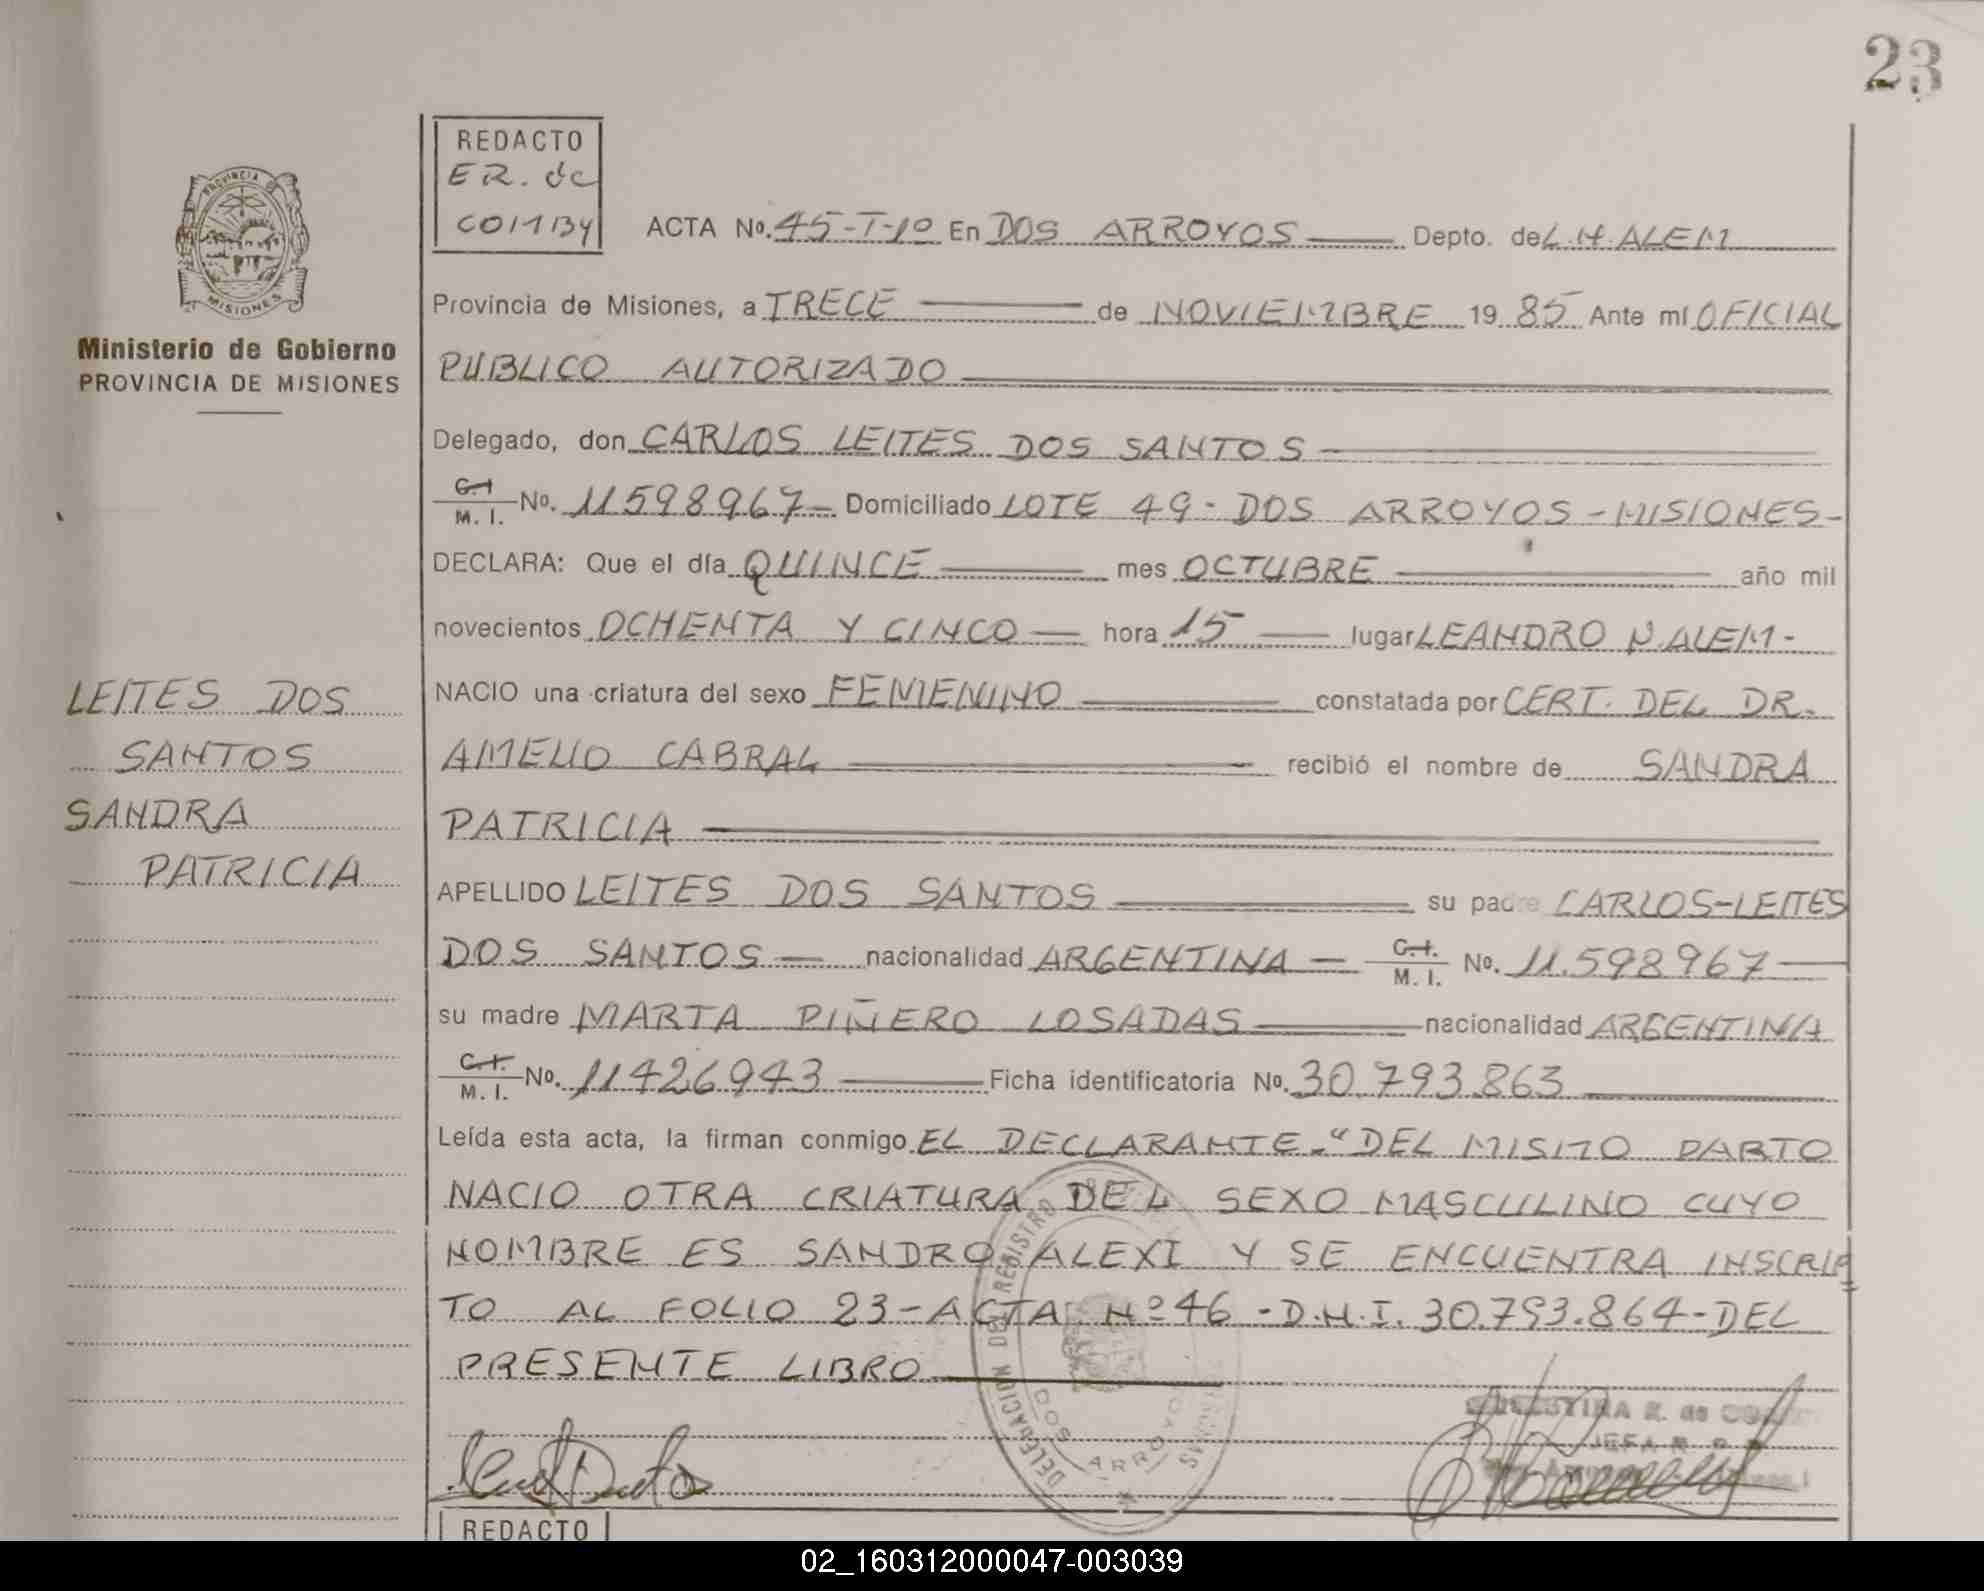 23
REDACTO
ER. de
COMBY
PROVINCIA DE
MISIONES
Ministerio de Gobierno
PROVINCIA DE MISIONES
ACTA Nº. 45-T-1º En DOS ARROYOS Depto. de L.N. ALEM
Provincia de Misiones, a TRECE de NOVIEMBRE 19 85 Ante mí OFICIAL
PUBLICO AUTORIZADO
Delegado, don CARLOS LEITES DOS SANTOS
C.I M. I. Nº. 11598967- Domiciliado LOTE 49 - DOS ARROYOS - MISIONES-
DECLARA: Que el día QUINCE mes OCTUBRE año mil
novecientos OCHENTA Y CINCO hora 15 lugar LEANDRO N. ALEM-
NACIO una criatura del sexo FEMENINO constatada por CERT. DEL DR.
AMELIO CABRAL recibió el nombre de SANDRA
PATRICIA
LEITES DOS
SANTOS
SANDRA
PATRICIA
APELLIDO LEITES DOS SANTOS su padre CARLOS-LEITES
DOS SANTOS nacionalidad ARGENTINA C.I. M. I. Nº. 11.598967
su madre MARTA PIÑERO LOSADAS nacionalidad ARGENTINA
C.I. M. I. Nº. 11426943 Ficha identificatoria Nº. 30.793.863
Leída esta acta, la firman conmigo EL DECLARANTE-"DEL MISMO PARTO
NACIO OTRA CRIATURA DEL SEXO MASCULINO CUYO
NOMBRE ES SANDRO ALEXI Y SE ENCUENTRA INSCRIP
TO AL FOLIO 23-ACTA Nº 46 -D.N.I. 30.793.864-DEL
PRESENTE LIBRO
DELEGACION DEL REGISTRO
DOS ARROYOS
JEFA
REDACTO
02_160312000047-003039